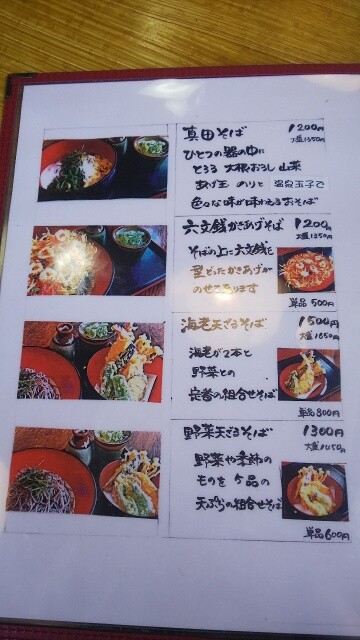 真田そば 1200円
大盛1350円
ひとつの器の中に
とろろ 大根おろし 山菜
あげ玉 のりと 温泉玉子で
色々な味が味わえるおそば
六文銭かきあげそば 1200円
大盛1350円
そばの上に六文銭に
型どったかきあげが
のせてあります
単品 500円
海老天ざるそば 1500円
大盛1650円
海老が2本と
野菜との
定番の組合せそば
単品800円
野菜天ざるそば 1300円
大盛1450円
野菜や季節の
ものを5品の
天ぷらの組合せそば
単品600円